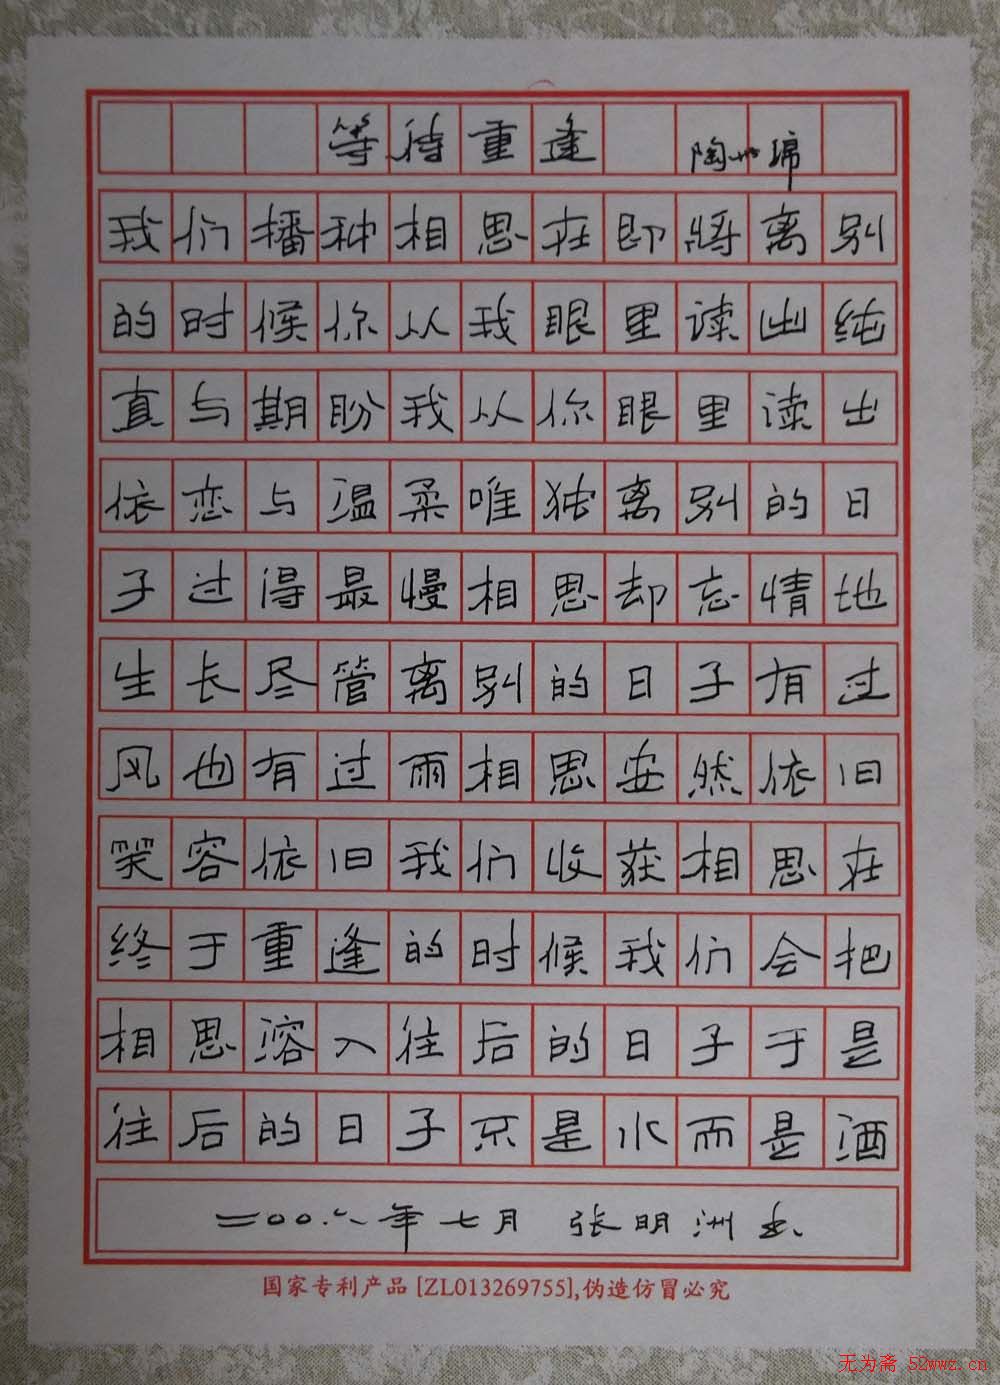 等待重逢 陶
我们播种相思在即将离别
的时候你从我眼里读出纯
真与期盼我从你眼里读出
依恋与温柔唯独离别的日
子过得最慢相思却忘情地
生长尽管离别的日子有过
风也有过雨相思安然依旧
笑容依旧我们收获相思在
终于重逢的时候我们会把
相思溶入往后的日子于是
往后的日子不是水而是酒
二〇〇六年七月 张明洲书
国家专利产品 [ZL013269755],伪造仿冒必究
无为斋 52wwz.cn